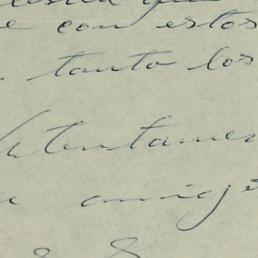 que
e con estos
tanto los
Atentamen
u amig